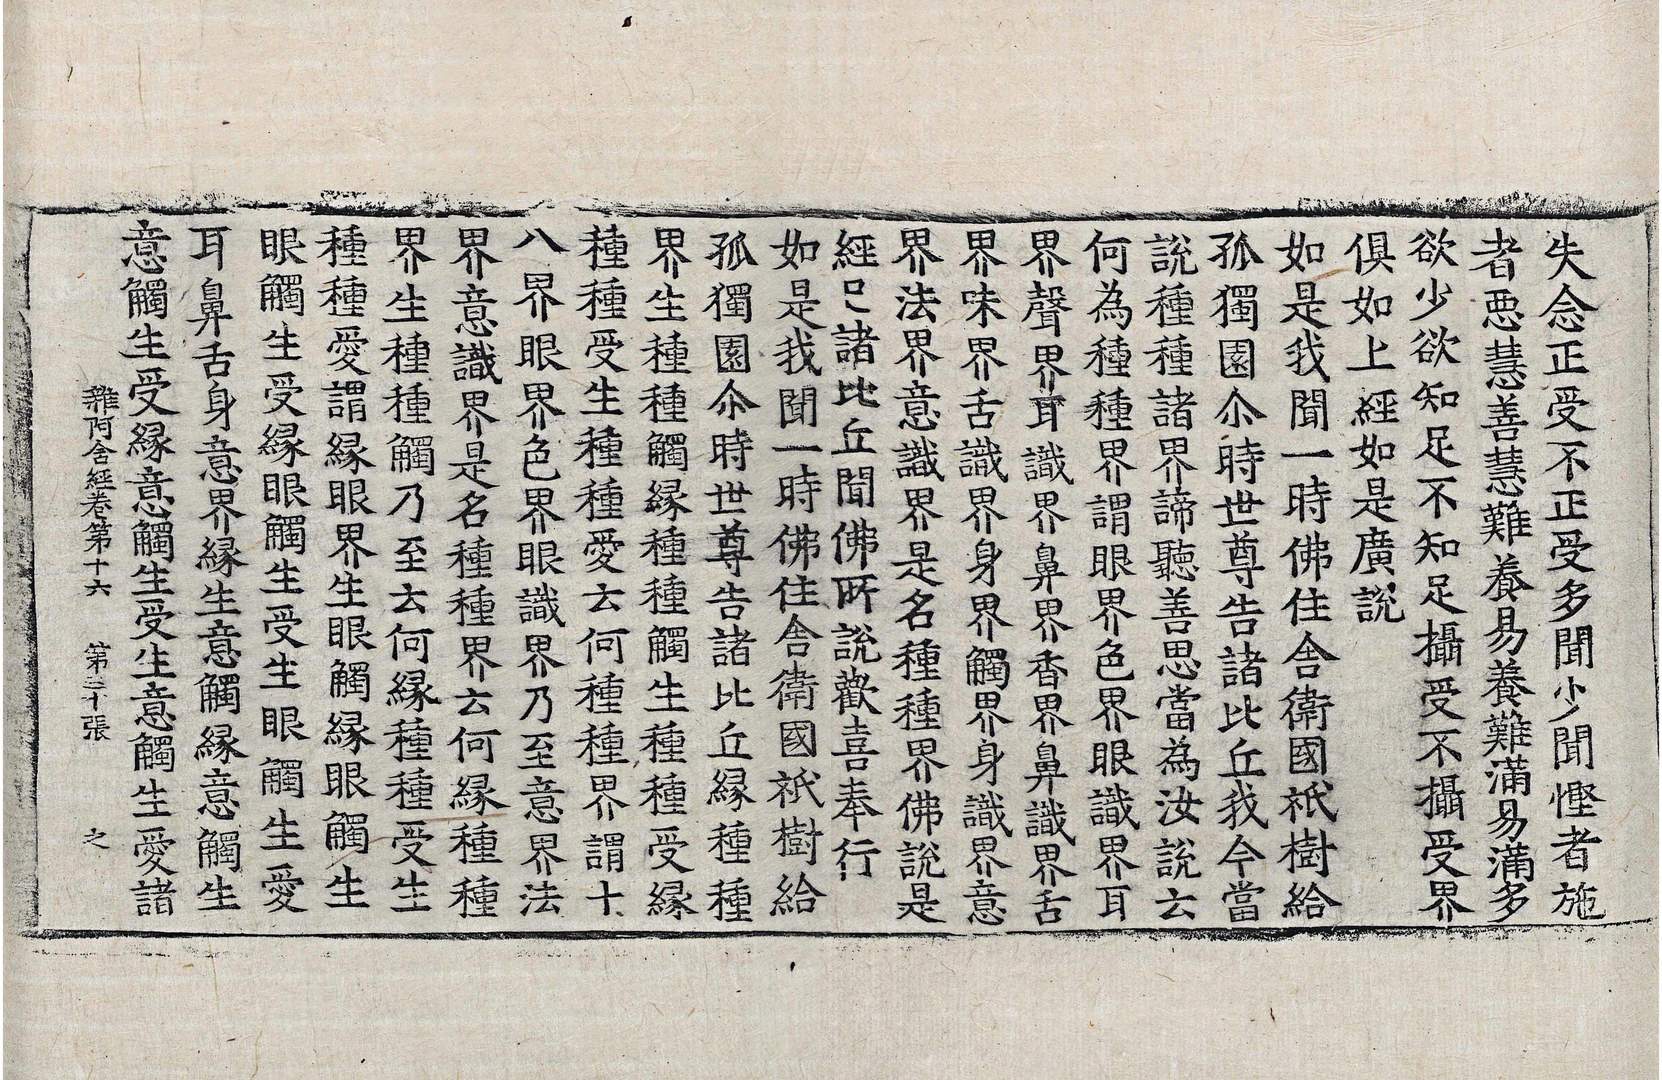 失念正受不正受多聞少聞慳者施
者惡慧善慧難養易養難滿易滿多
欲少欲知足不知足攝受不攝受界
俱如上經如是廣說
如是我聞一時佛住舍衛國祇樹給
孤獨園尒時世尊告諸比丘我今當
說種種諸界諦聽善思當為汝說云
何為種種界謂眼界色界眼識界耳
界聲界耳識界鼻界香界鼻識界舌
界味界舌識界身界觸界身識界意
界法界意識界是名種種界佛說是
經已諸比丘聞佛所說歡喜奉行
如是我聞一時佛住舍衛國祇樹給
孤獨園尒時世尊告諸比丘緣種種
界生種種觸緣種種觸生種種受緣
種種受生種種愛云何種種界謂十
八界眼界色界眼識界乃至意界法
界意識界是名種種界云何緣種種
界生種種觸乃至云何緣種種受生
種種愛謂緣眼界生眼觸緣眼觸生
眼觸生受緣眼觸生受生眼觸生愛
耳鼻舌身意界緣生意觸緣意觸生
意觸生受緣意觸生受生意觸生愛諸
雜阿含經卷第十六 第二十張 之